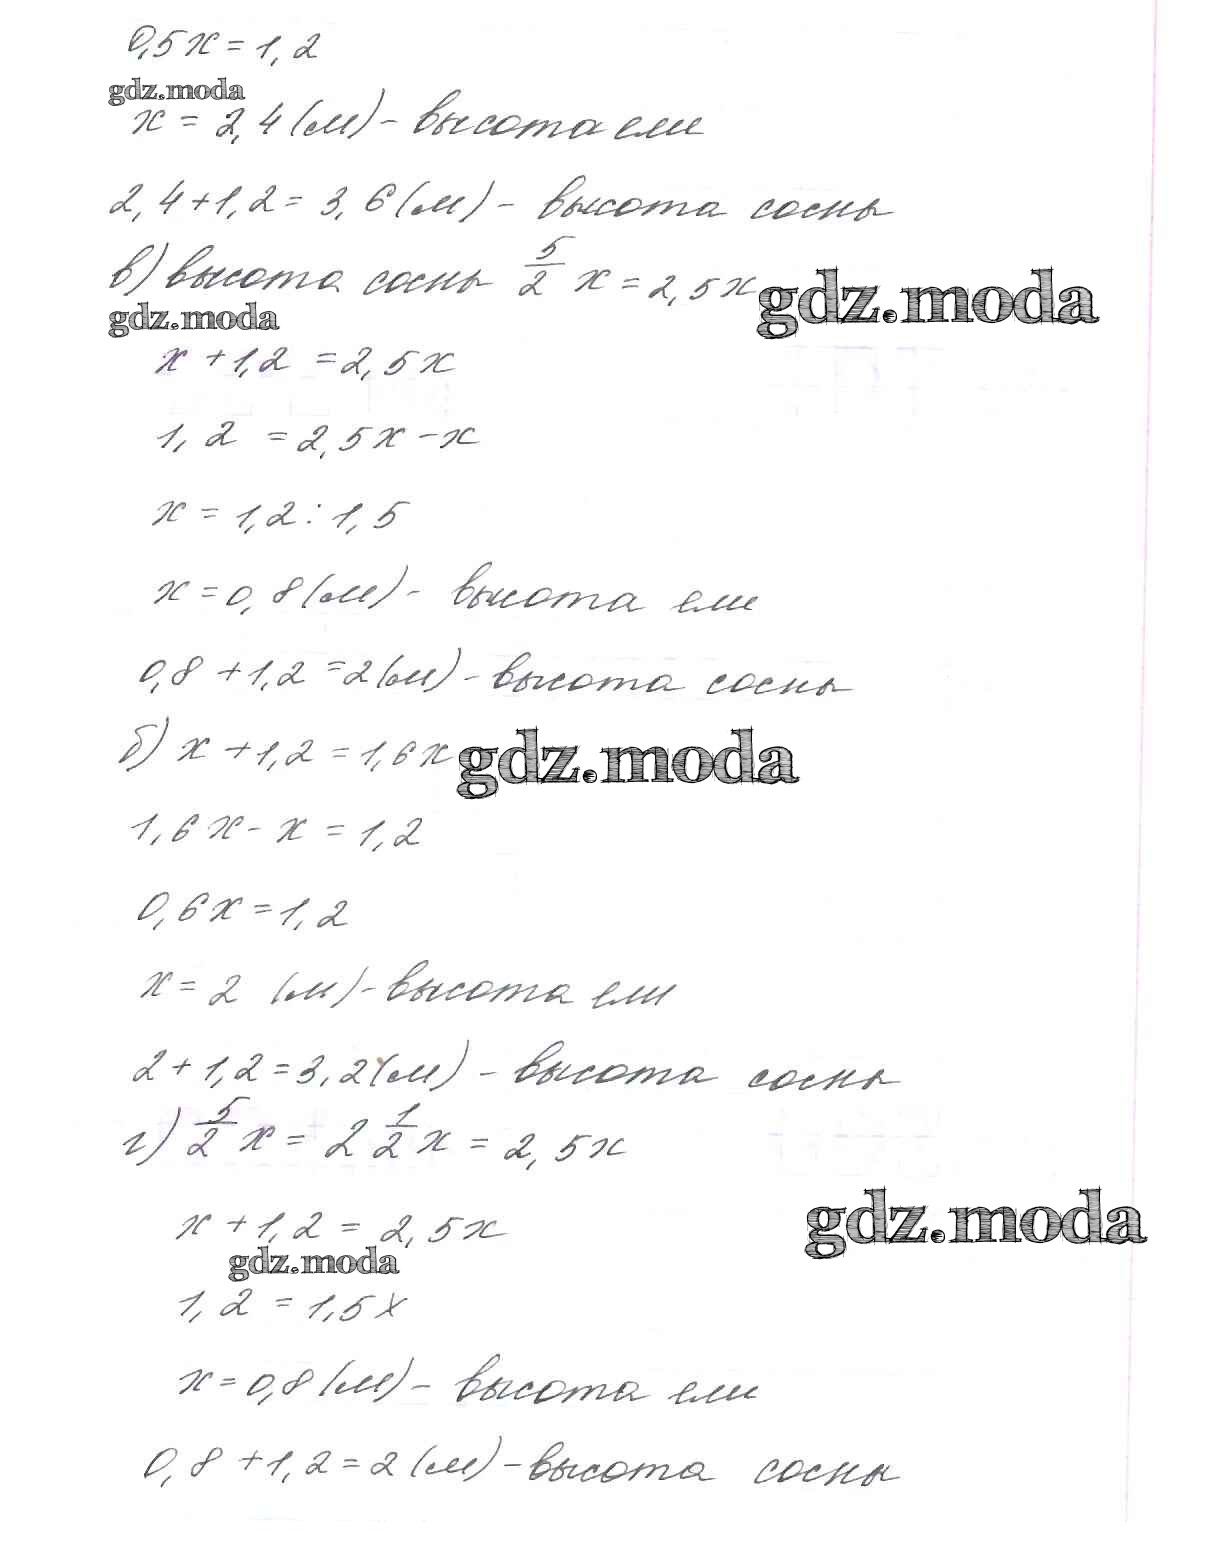 0,5x = 1,2
gdz.moda
x = 2,4 (м) - высота ели
2,4 + 1,2 = 3,6 (м) - высота сосны
в) высота сосны 5/2 x = 2,5x
gdz.moda
gdz.moda
x + 1,2 = 2,5x
1,2 = 2,5x - x
x = 1,2 : 1,5
x = 0,8 (м) - высота ели
0,8 + 1,2 = 2 (м) - высота сосны
б) x + 1,2 = 1,6x
gdz.moda
1,6x - x = 1,2
0,6x = 1,2
x = 2 (м) - высота ели
2 + 1,2 = 3,2 (м) - высота сосны
г) 5/2 x = 2 1/2 x = 2,5x
x + 1,2 = 2,5x
gdz.moda
gdz.moda
1,2 = 1,5x
x = 0,8 (м) - высота ели
0,8 + 1,2 = 2 (м) - высота сосны